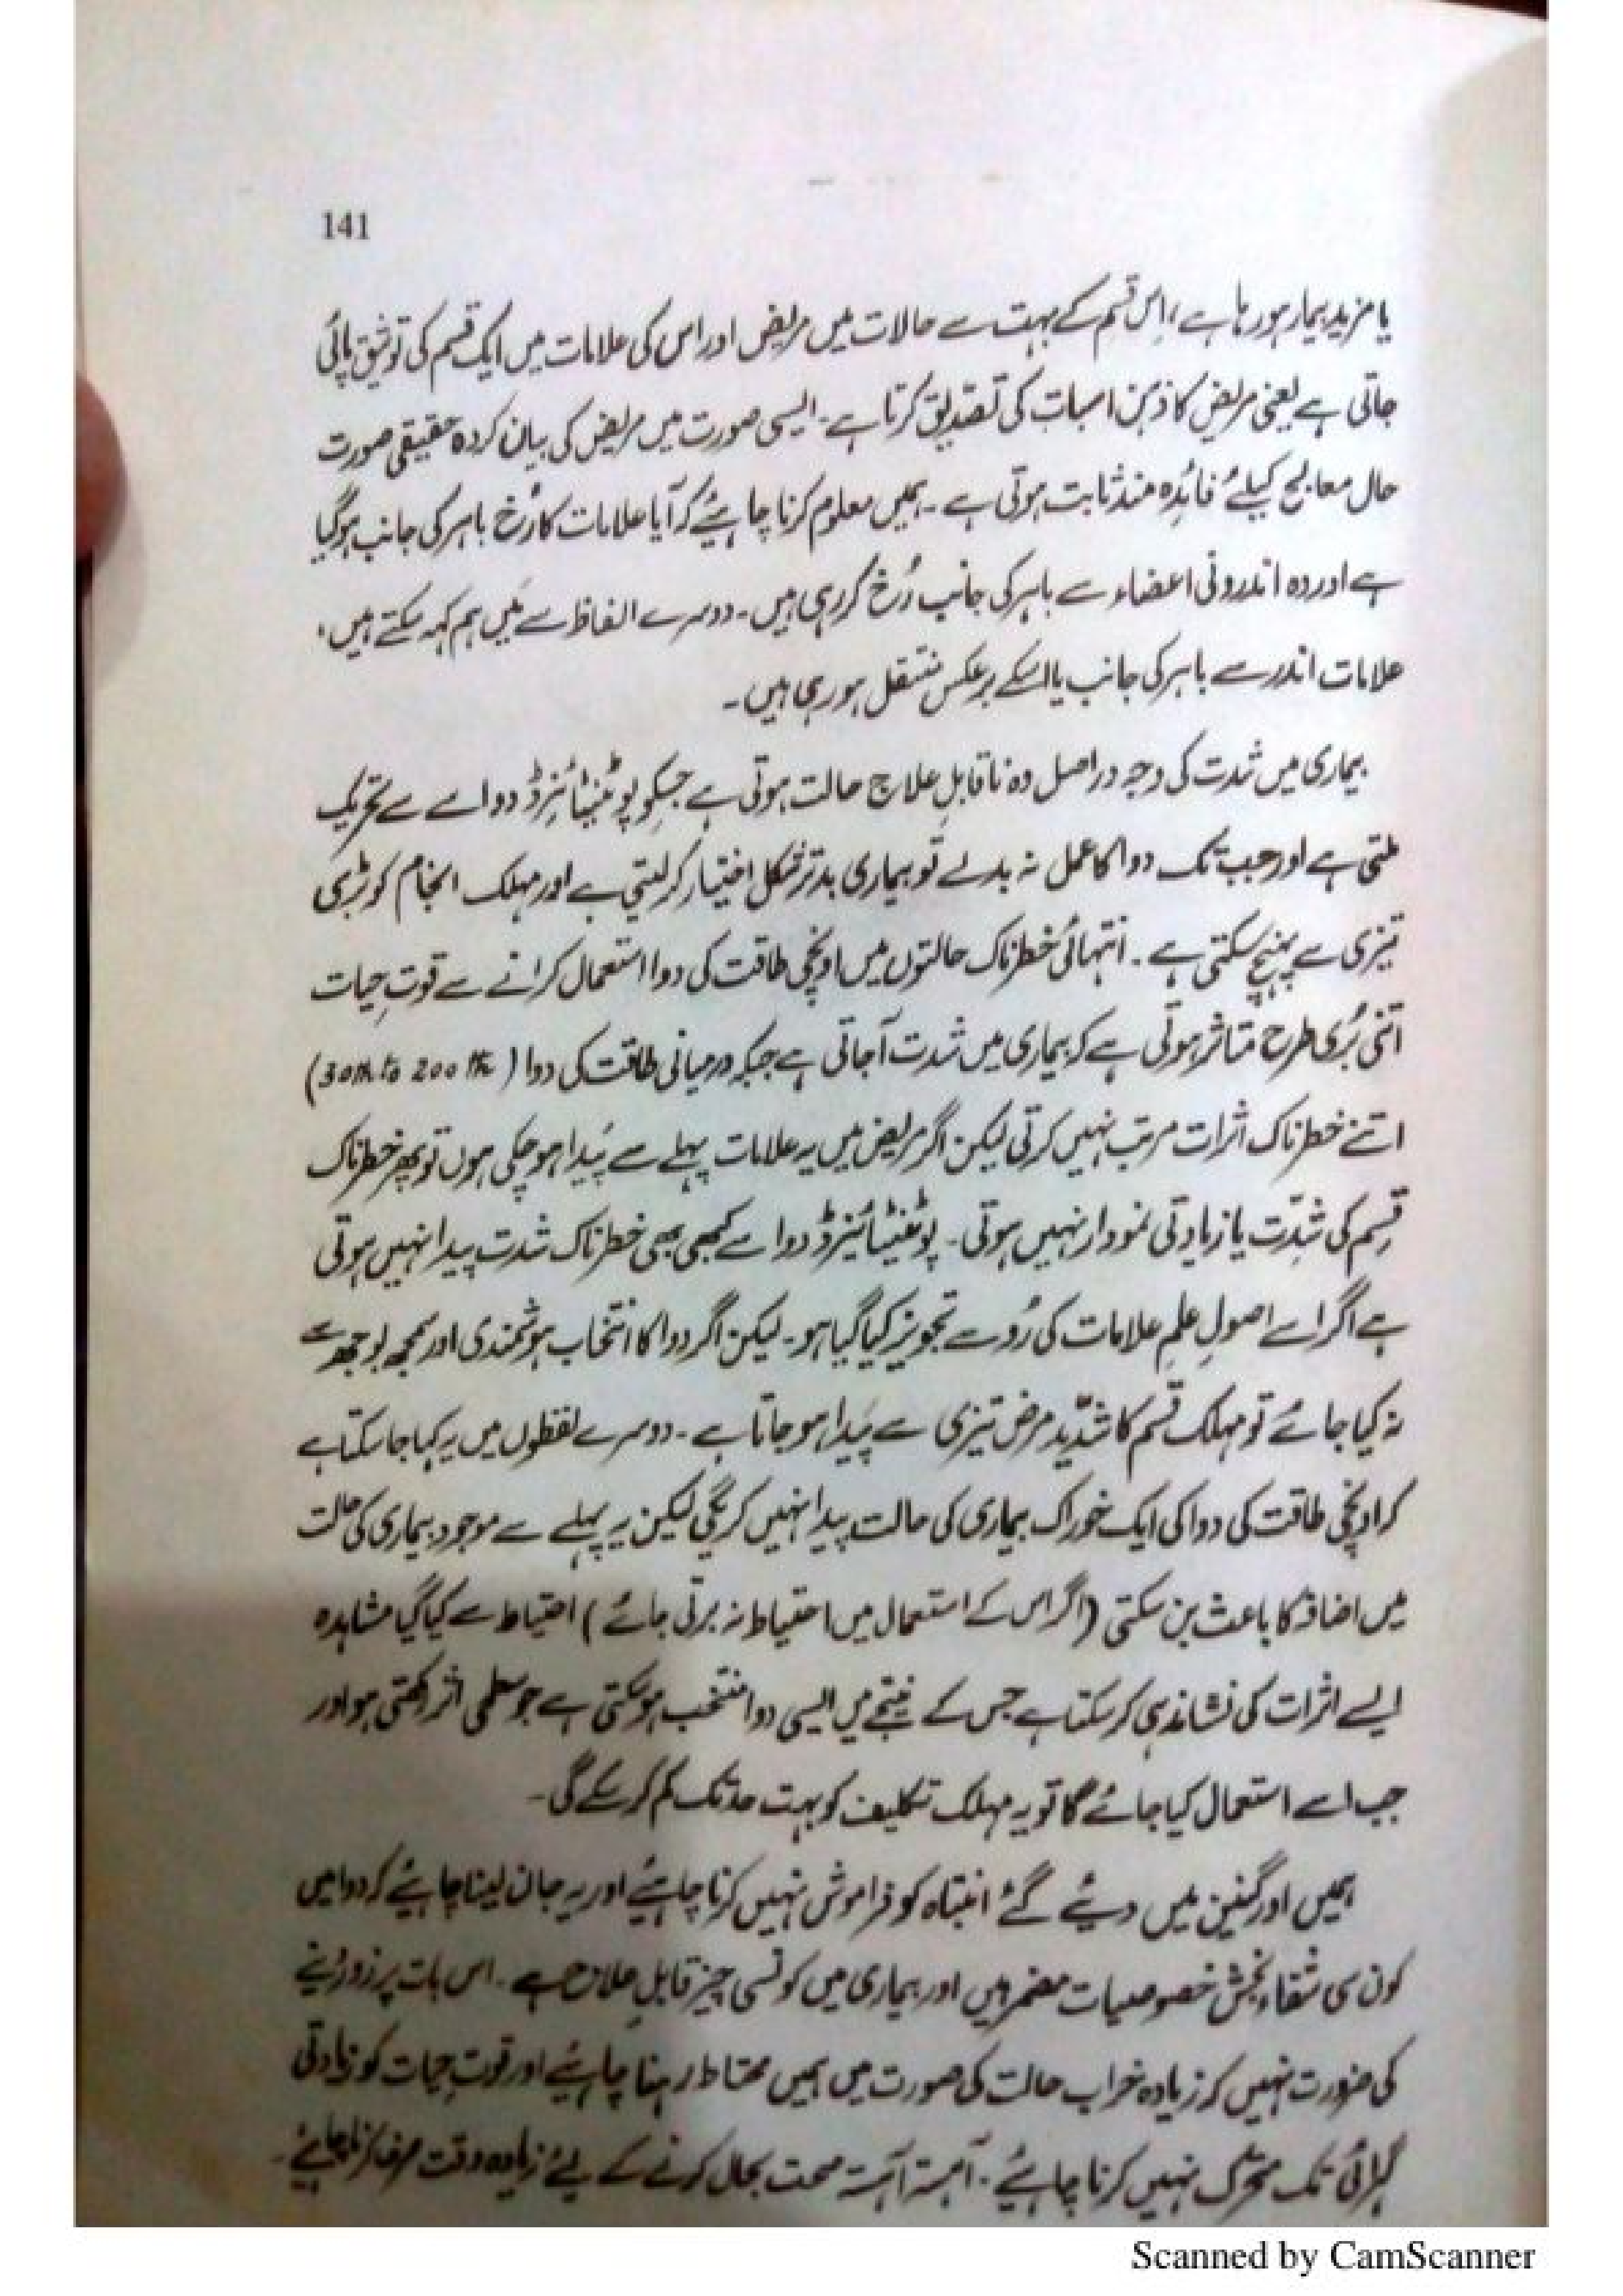 141
یا مزید بیمار ہورہا ہے، اِس قسم کے بہت سے حالات میں مریض اور اس کی علامات میں ایک قسم کی توثیق پائی
جاتی ہے یعنی مریض کا ذہن اسبات کی تصدیق کرتا ہے۔ ایسی صورت میں مریض کی بیان کردہ حقیقی صورت
حال معالج کیلئے فائدہ مند ثابت ہوتی ہے۔ ہمیں معلوم کرنا چاہیئے کہ آیا علامات کا رُخ باہر کی جانب ہوگیا
ہے اور وہ اندرونی اعضاء سے باہر کی جانب رُخ کر رہی ہیں۔ دوسرے الفاظ سے میں ہم کہہ سکتے ہیں،
علامات اندر سے باہر کی جانب یا اسکے برعکس منتقل ہو رہی ہیں۔
بیماری میں شدت کی وجہ دراصل وہ ناقابلِ علاج حالت ہوتی ہے جسکو پوٹینٹائزڈ دوا سے سے تحریک
ملتی ہے اور جب تک دوا کا عمل نہ بدلے تو بیماری بدتر شکل اختیار کر لیتی ہے اور مہلک انجام کو بڑی
تیزی سے پہنچ سکتی ہے۔ انتہائی خطرناک حالتوں میں اونچی طاقت کی دوا استعمال کرانے سے قوتِ حیات
اتنی بُری طرح متاثر ہوتی ہے کہ بیماری میں شدت آجاتی ہے جبکہ درمیانی طاقت کی دوا (30th to 200th)
اتنے خطرناک اثرات مرتب نہیں کرتی لیکن اگر مریض میں یہ علامات پہلے سے پَیدا ہو چکی ہوں تو پھر خطرناک
قِسم کی شدّت یا زیادتی نمودار نہیں ہوتی۔ پوٹینٹائیزڈ دوا سے کبھی بھی خطرناک شدت پیدا نہیں ہوتی
ہے اگر اسے اصولِ علمِ علامات کی رُو سے تجویز کیا گیا ہو۔ لیکن اگر دوا کا انتخاب ہوشمندی اور سمجھ بوجھ سے
نہ کیا جائے تو مہلک قسم کا شدّید مرض تیزی سے پَیدا ہو جاتا ہے۔ دوسرے لفظوں میں یہ کہا جا سکتا ہے
کہ اونچی طاقت کی دوا کی ایک خوراک بیماری کی حالت پیدا نہیں کریگی لیکن یہ پہلے سے موجود بیماری کی حالت
میں اضافہ کا باعث بن سکتی (اگر اس کے استعمال میں احتیاط نہ برتی جائے) احتیاط سے کیا گیا مشاہدہ
ایسے اثرات کی نشاندہی کر سکتا ہے جس کے نتیجے میں ایسی دوا منتخب ہو سکتی ہے جو سطحی اثر رکھتی ہو اور
جب اسے استعمال کیا جائے گا تو یہ مہلک تکلیف کو بہت حد تک کم کر سکے گی۔
ہمیں اورگینن میں دیئے گئے انتباہ کو فراموش نہیں کرنا چاہیئے اور یہ جان لینا چاہیئے کہ دوا میں
کون سی شفاء بخش خصوصیات مضمر ہیں اور بیماری میں کونسی چیز قابلِ علاج ہے۔ اس بات پر زور دینے
کی ضرورت نہیں کہ زیادہ خراب حالت کی صورت میں ہمیں محتاط رہنا چاہیئے اور قوتِ حیات کو زیادتی
گہرائی تک متحرک نہیں کرنا چاہیئے۔ آہستہ آہستہ صحت بحال کرنے کے لیئے زیادہ وقت صرف کرنا چاہیئے۔
Scanned by CamScanner